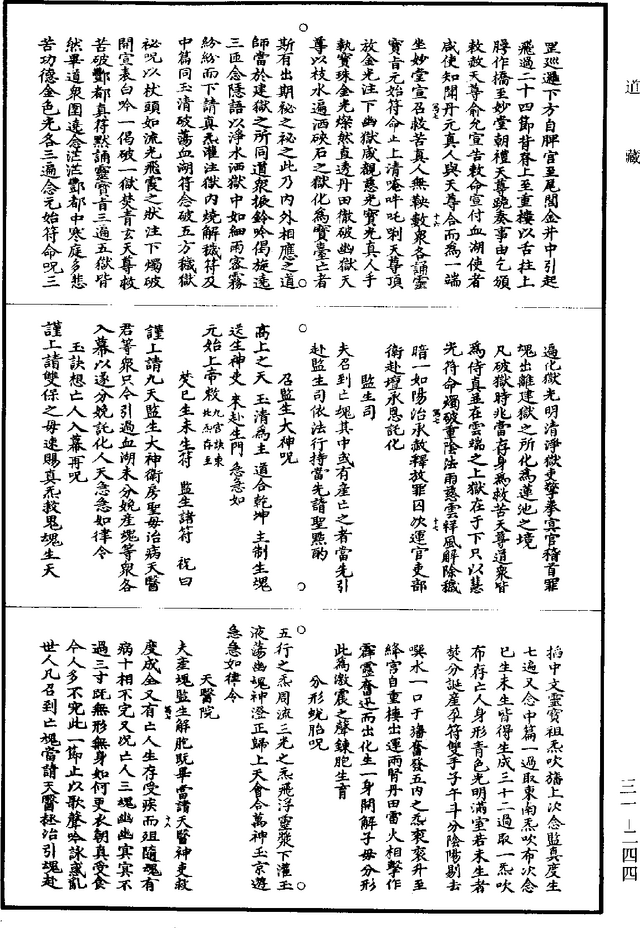 道藏
罡巡遞下方自脾宮至尾閭金井中引起
飛過二十四節脊脊上至重樓以舌柱上
腭作橋至妙堂朝禮天尊跪奏事由乞頒
敕赦天尊俞允宣告敕命宣付血湖使者
咸使知聞丹元真人與天尊合而為一端
坐妙堂宣召救苦真人無鞅數眾各誦靈
寶肓元始符命止上清唵吽吒唎天尊頂
放金光注下幽獄咸覩慈光寶光真人手
執寶珠金光燦然直透丹田徹破幽獄天
尊以枝水遍洒硤石之獄化為寶臺亡者
斯有出期秘之秘之此乃內外相應之道
師當於建獄之所同道眾振鈴吟偈旋遶
三匝念隱語以淨水洒獄中如細雨密霧
紛紛而下請真炁灌注獄內燒解穢符及
中篇同玉清破蕩血湖符念破五方穢獄
秘呪以杖頭如流光飛霞之狀注下燭破
開宣表白吟一偈破一獄焚青玄天尊救
苦破酆都真符默誦靈寶肓三遍五獄皆
然畢道眾圍遶念茫茫酆都中寒庭多悲
苦功德金色光各三遍念元始符命呪三
遍化獄光明清淨獄吏擎拳冥官稽首罪
魂出離建獄之所化為蓮池之境
凡破獄時兆當存身為救苦天尊道眾皆
為侍真並在雲端之上獄在于下只以慧
光符命燭破重陰法雨慈雲祥風解除穢
暗一如陽治承赦釋放罪囚次運官吏部
衛赴壇承恩託化
監生司
夫召到亡魂其中或有產亡之者當先引
赴監生司依法行持當先請聖點酌
召監生大神呪
高上之天 玉清為主 道合乾坤 主制生魂
送生神吏 來赴生門 急急如
元始上帝敕 九宮訣東北為存至
焚已生未生符 監生諸符 祝曰
謹上請九天監生大神衛房聖母治病天醫
君等眾只今引過血湖未分娩產魂等眾各
入幕以遂分娩託化人天急急如律令
玉訣想亡人入幕再呪
謹上請雙保之母速賜真炁救鬼魂生天
掐中文靈寶祖炁吹旛上次念監真度生
七遍又念中篇一過取東南炁吹布次念
已生未生皆得生成三十二過取一炁吹
布存亡人身形青色光明滿室若未生者
焚分誕產孕符雙手子午斗分陰陽剔去
噀水一口于旛奮發五內之炁衮衮升至
絳宮自重樓出運兩腎丹田雷火相擊作
霹靂奮迅而出化生一身開解子母分形
此為激震之聲鍊胞生育
分形蛻胎呪
五行之炁周流三光之炁飛浮靈飛下灌玉
液蕩幽魂神澄正歸上天會合萬神玉京遊
急急如律令
天醫院
夫產魂監生解胞既畢當請天醫神吏救
度成全又有亡人生存受疾而殂隨魂有
病十相不完又況亡人三魂幽幽冥冥不
過三寸既無形無身如何更衣朝真受食
今人多不究此一節止以歌聲吟詠惑亂
世人凡召到亡魂當請天醫拯治引魂赴
三一-二四四